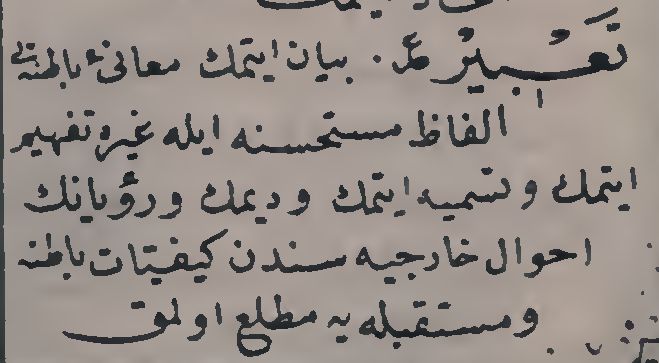 تَعْبِيْرْ عر. بيان ايتمك معانئ باطنه يى
الفاظ مستحسنه ايله غيره تفهيم
ايتمك وتسميه ايتمك وديمك ورؤيانك
احوال خارجيه سندن كيفيتات باطنه
ومستقبله يه مطلع اولمق